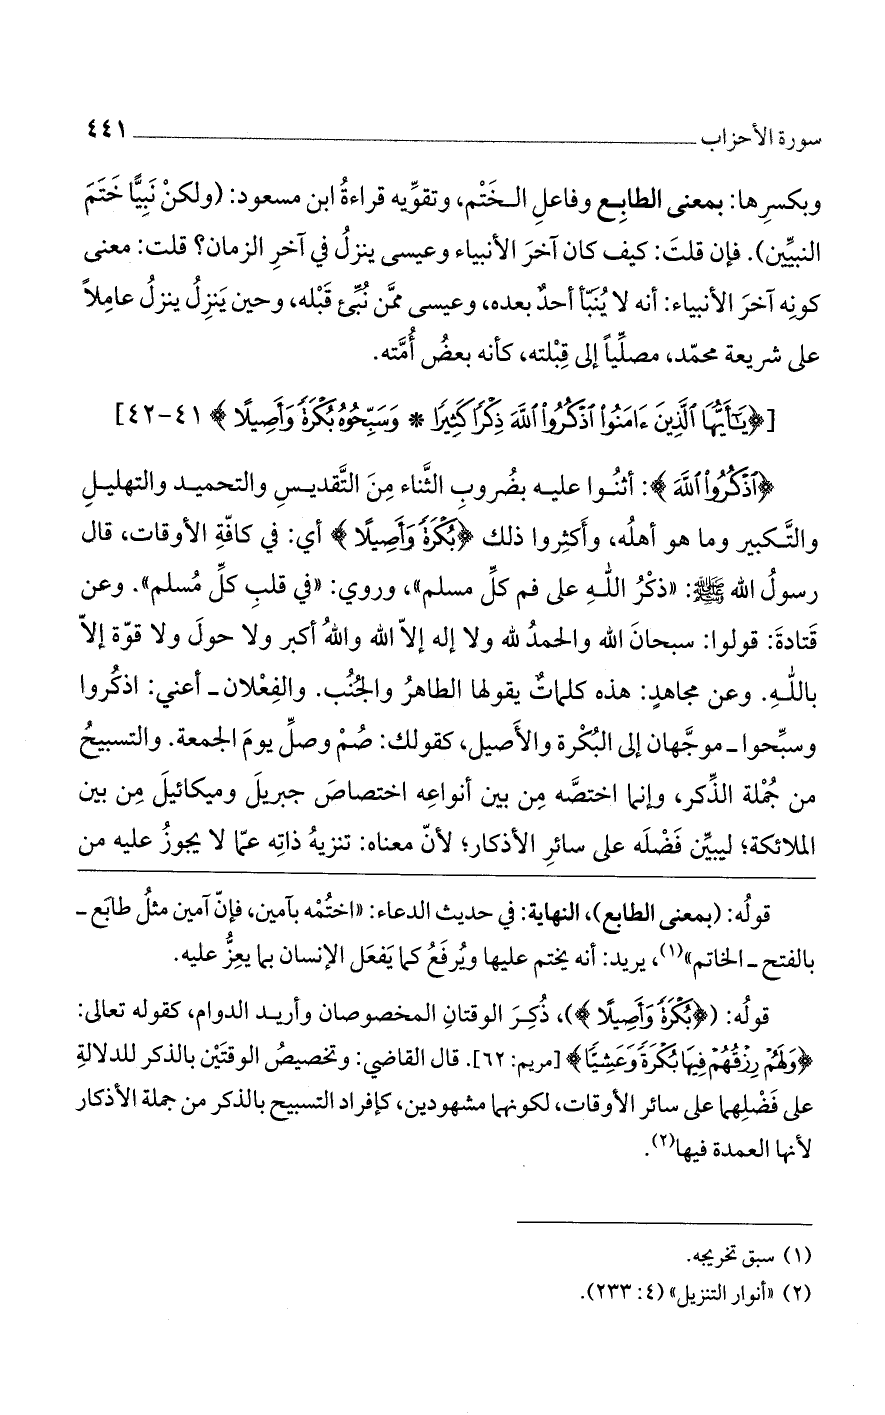 سورة الأحزاب ٤٤١
وبكسرِها: بمعنى الطابِع وفاعلِ الـخَتْم، وتقوِّيه قراءةُ ابن مسعود: (ولكنْ نَبِيًّا خَتَمَ
النبيِّين). فإن قلتَ: كيف كان آخرَ الأنبياء وعيسى ينزلُ في آخرِ الزمان؟ قلت: معنى
كونِه آخرَ الأنبياء: أنه لا يُنَبّأ أحدٌ بعده، وعيسى ممَّن نُبِّئ قَبْله، وحين يَنزِلُ ينزلُ عامِلاً
على شريعة محمّد، مصلِّياً إلى قِبْلته، كأنه بعضُ أُمَّته.
[﴿يَٰٓأَيُّهَا ٱلَّذِينَ ءَامَنُوا۟ ٱذْكُرُوا۟ ٱللَّهَ ذِكْرًا كَثِيرًا * وَسَبِّحُوهُ بُكْرَةً وَأَصِيلًا ﴾ ٤١-٤٢]
﴿ٱذْكُرُوا۟ ٱللَّهَ ﴾: أثنُوا عليه بضُروبِ الثَّناء مِنَ التَّقديسِ والتحميد والتهليلِ
والتَّكبير وما هو أهلُه، وأَكثِروا ذلك ﴿بُكْرَةً وَأَصِيلًا ﴾ أي: في كافّةِ الأوقات، قال
رسولُ الله ﷺ: «ذكْرُ اللَّهِ على فم كلِّ مسلم»، وروي: «في قلبِ كلِّ مُسلم». وعن
قَتادةَ: قولوا: سبحانَ الله والحمدُ لله ولا إله إلاّ الله واللهُ أكبر ولا حولَ ولا قوّة إلاّ
باللَّهِ. وعن مجاهدٍ: هذه كلماتٌ يقولها الطاهرُ والجُنُب. والفِعْلان ـ أعني: اذكُروا
وسبِّحوا ـ موجَّهان إلى البُكْرة والأَصيل، كقولك: صُمْ وصلِّ يومَ الجمعة. والتسبيحُ
من جُمْلة الذِّكر، وإنما اختصَّه مِن بين أنواعِه اختصاصَ جبريلَ وميكائيلَ مِن بين
الملائكة؛ ليبيِّن فَضْلَه على سائرِ الأذكار؛ لأنّ معناه: تنزيهُ ذاتِه عمّا لا يجوزُ عليه من
قولُه: (بمعنى الطابع)، النهاية: في حديث الدعاء: «اختُمْه بآمين، فإنّ آمين مثلُ طابَع ـ
بالفتح ـ الخاتم»(١)، يريد: أنه يختم عليها ويُرفَعُ كما يَفعَل الإنسان بما يعِزُّ عليه.
قولُه: (﴿بُكْرَةً وَأَصِيلًا ﴾)، ذُكِرَ الوقتانِ المخصوصان وأريد الدوام، كقوله تعالى:
﴿وَلَهُمْ رِزْقُهُمْ فِيهَا بُكْرَةً وَعَشِيًّا﴾ [مريم: ٦٢]. قال القاضي: وتخصيصُ الوقتَيْن بالذكر للدلالةِ
على فَضْلِهما على سائر الأوقات، لكونهما مشهودين، كإفراد التسبيح بالذكر من جملة الأذكار
لأنها العمدة فيها(٢).
(١) سبق تخريجه.
(٢) «أنوار التنزيل» (٤: ٢٣٣).